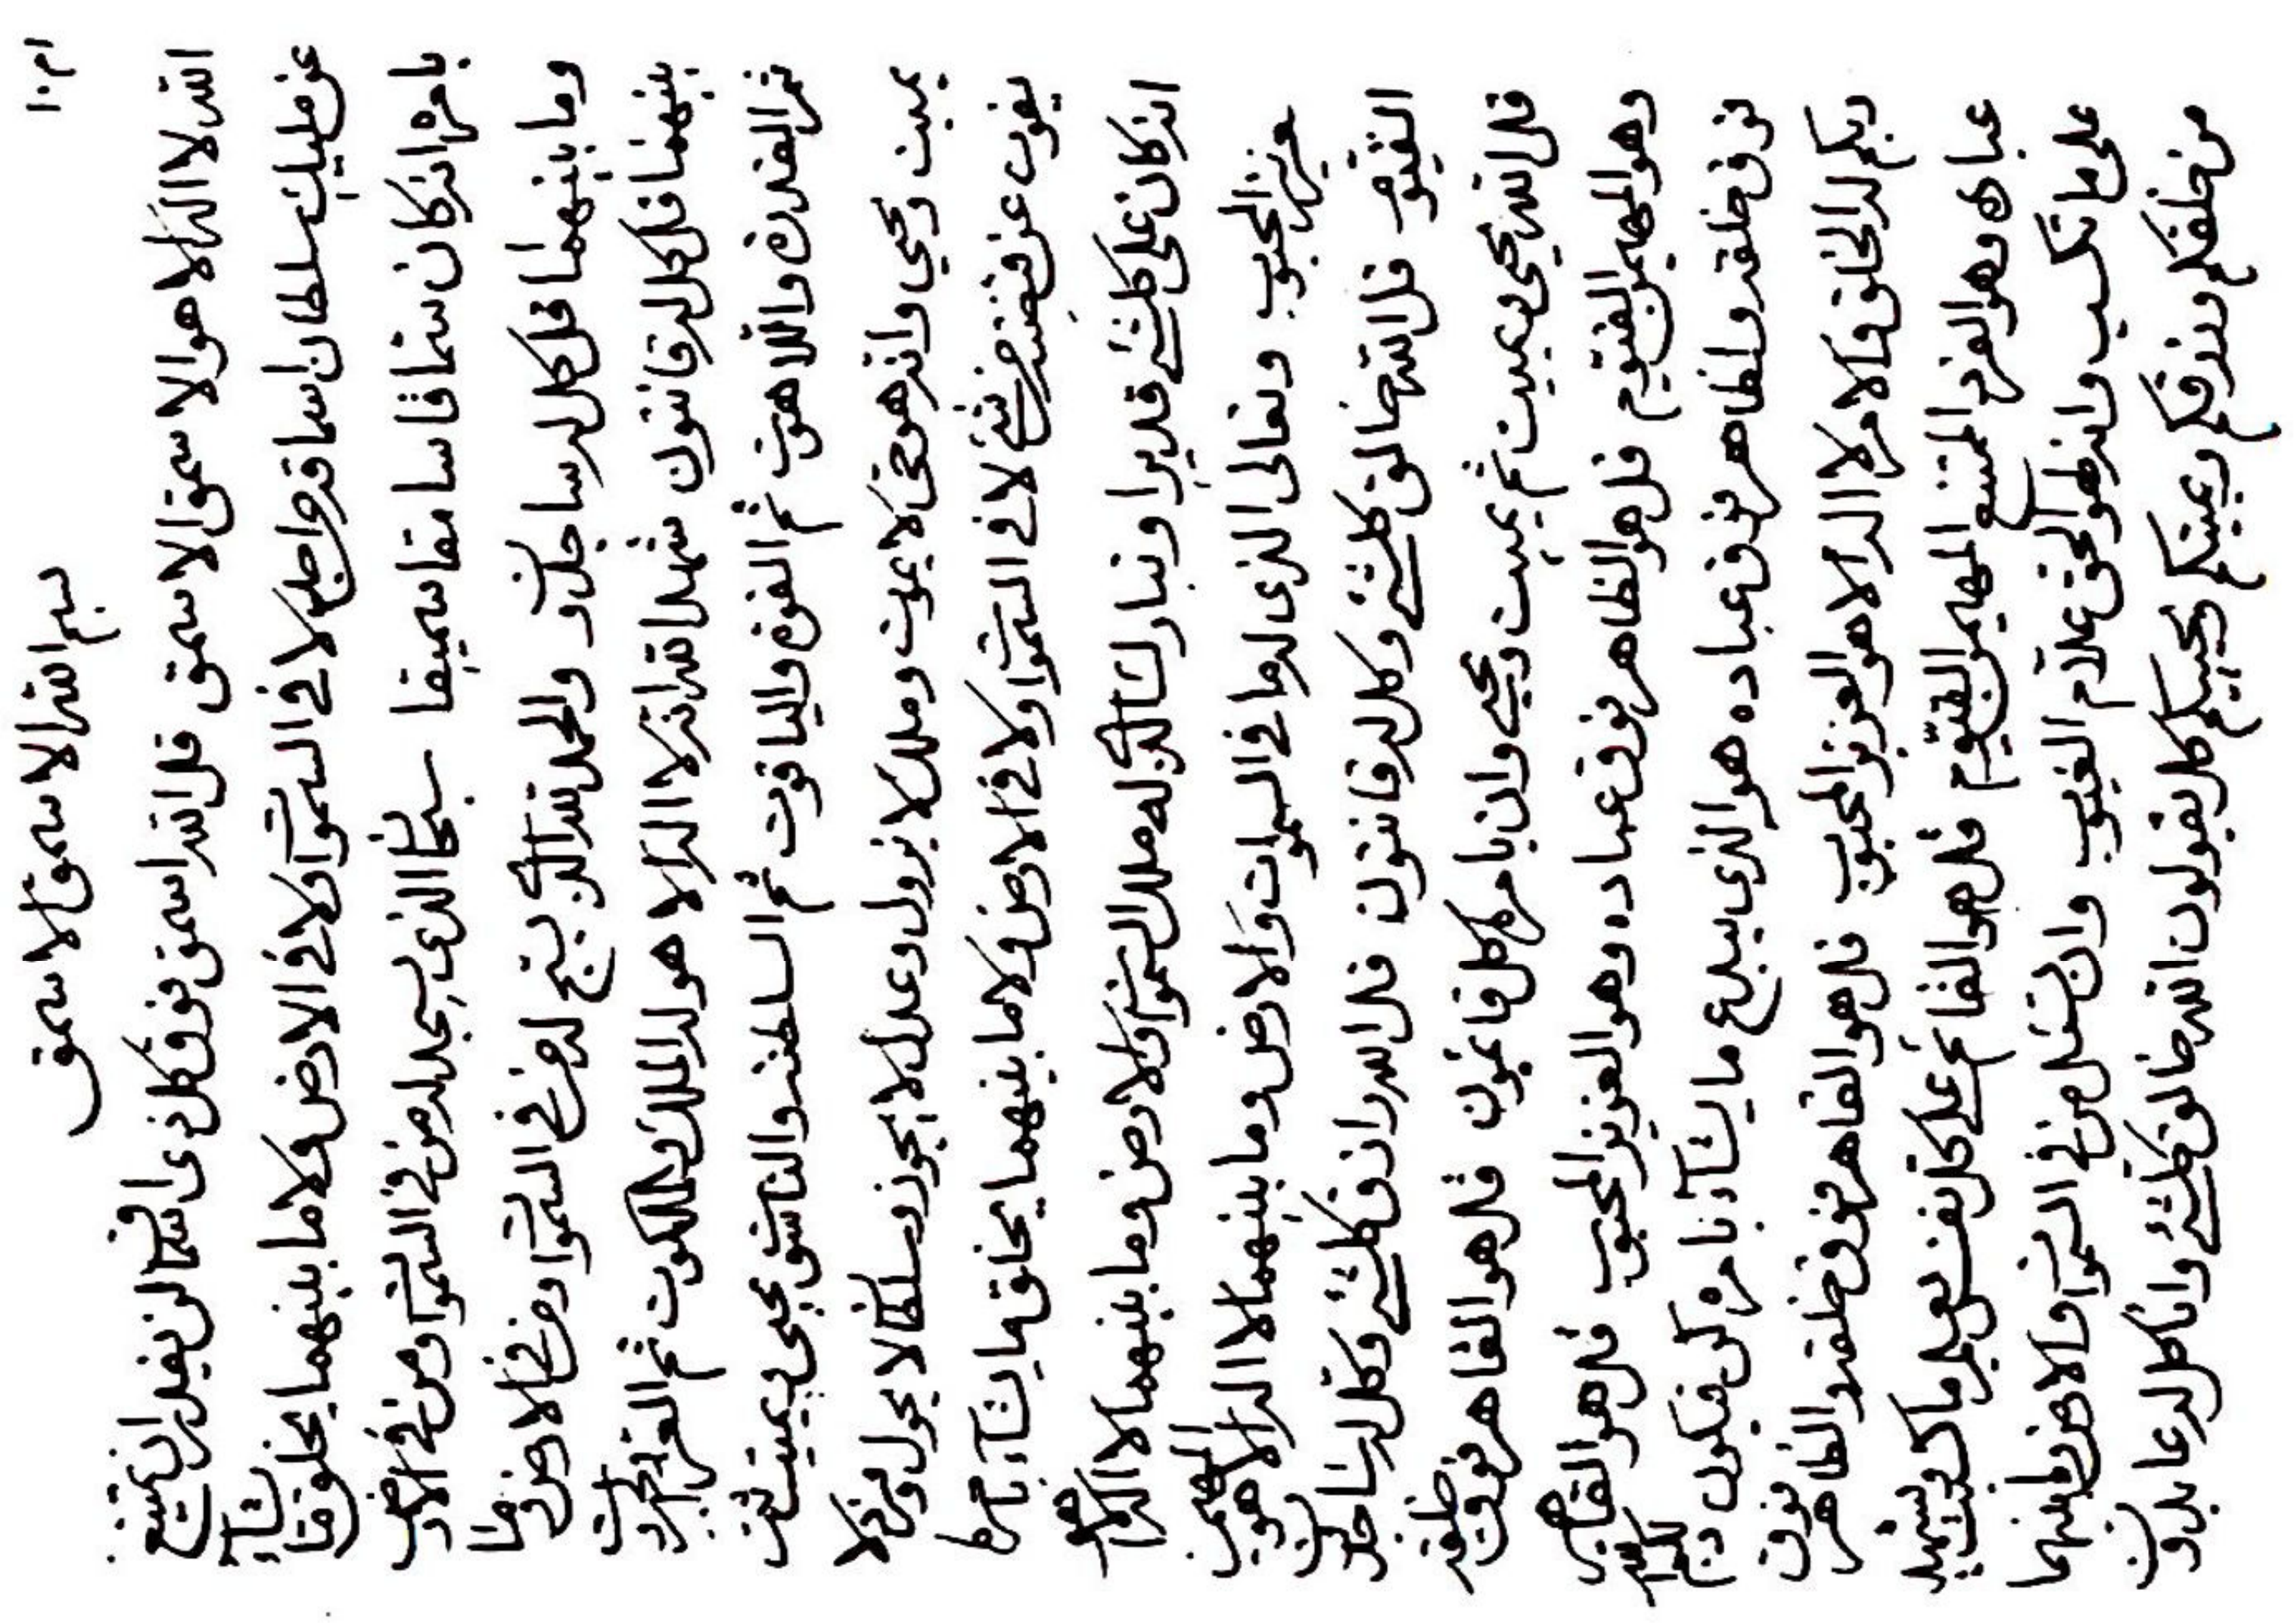 بسم الله الاسمق الاسمق
الله لا اله الا هو الاسمق الاسمق قل الله اسمق فوق كل ذى اسماق لن يقدر ان يمتنع
عن مليك سلطان اسماقه من احد لا في السموات ولا في الارض ولا ما بينهما يخلق ما يشآء
بامره انه كان سماقا سامقا سميقا سبحان الذى يسجد له من في السموات ومن في الارض
وما بينهما قل كل له ساجدون والحمد لله الذى يسبح له من في السموات ومن في الارض وما
بينهما قل كل له قانتون شهد الله انه لا اله الا هو له الملك والملكوت ثم العز والجبروت
ثم القدرة واللاهوت ثم القوة والياقوت ثم السلطنة والناسوت يحيى ويميت ثم
يميت ويحيي وانه هو حى لا يموت وملك لا يزول وعدل لا يجور وسلطان لا يحول وفرد لا
يفوت عن قبضته من شئ لا في السموات ولا في الارض ولا ما بينهما يخلق ما يشآء بامره
انه كان على كلشئ قديرا وتبارك الذى له ملك السموات والارض وما بينهما لا اله الا هو
عزيز المحبوب وتعالى الذى له ما في السموات والارض وما بينهما لا اله الا هو المهيمن
القيوم قل الله خالق كلشئ وكل له قانتون قل الله رازق كلشئ وكل له ساجدون
قل الله يحيى ويميت ثم يميت ويحيي وان بامره كل قائمون قل هو القاهر فوق خلقه
وهو المهيمن القيوم قل هو الظاهر فوق عباده وهو العزيز المحبوب قل هو القاهر
فوق خلقه والظاهر فوق عباده هو الذى يبدع ما يشآء بامره كن فيكون ذلكم الله
ربكم له الخلق والامر لا اله الا هو العزيز المحبوب قل هو القاهر فوق خلقه والظاهر فوق
عباده وهو الفرد الممتنع المهيمن القيوم قل هو القائم على كل نفس يعلم ما كسبت ويشهد
على ما تكسب وانه لهو الحق علام الغيوب وان تسئل من في السموات والارض وما بينهما
من خلقكم ورزقكم ويميتكم ويحييكم كل يقولون الله خالق كلشئ وانا كل له عابدون